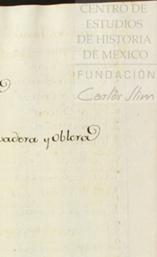 CENTRO DE
ESTUDIOS
DE HISTORIA
DE MÉXICO
FUNDACIÓN
Carlos Slim
vadora y Obtera